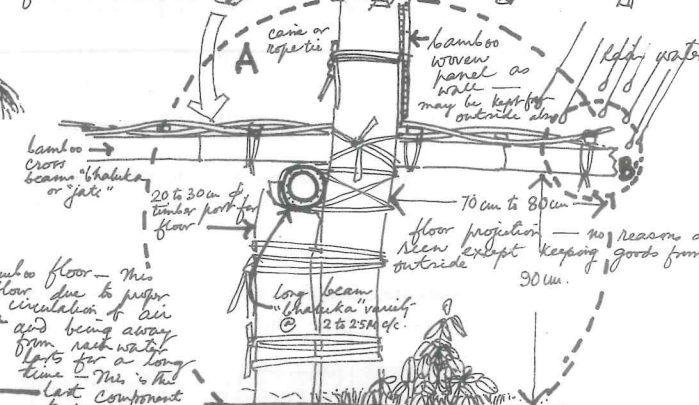 A
cane or
ropertie
bamboo
woven
panel as
wall —
may be kept for
outside also
water
bamboo
cross
beams "bhaluka"
or "jati"
B
20 to 30 cm ϕ
timber post for
floor
70 cm to 80 cm
floor projection — no reasons
seen except keeping goods from
outside
90 cm.
long beam
"bhaluka" variety
@ 2 to 2.5 M c/c.
floor — This
due to proper
circulation of air
and being away
from rain water
lasts for a long
time — This is the
last component